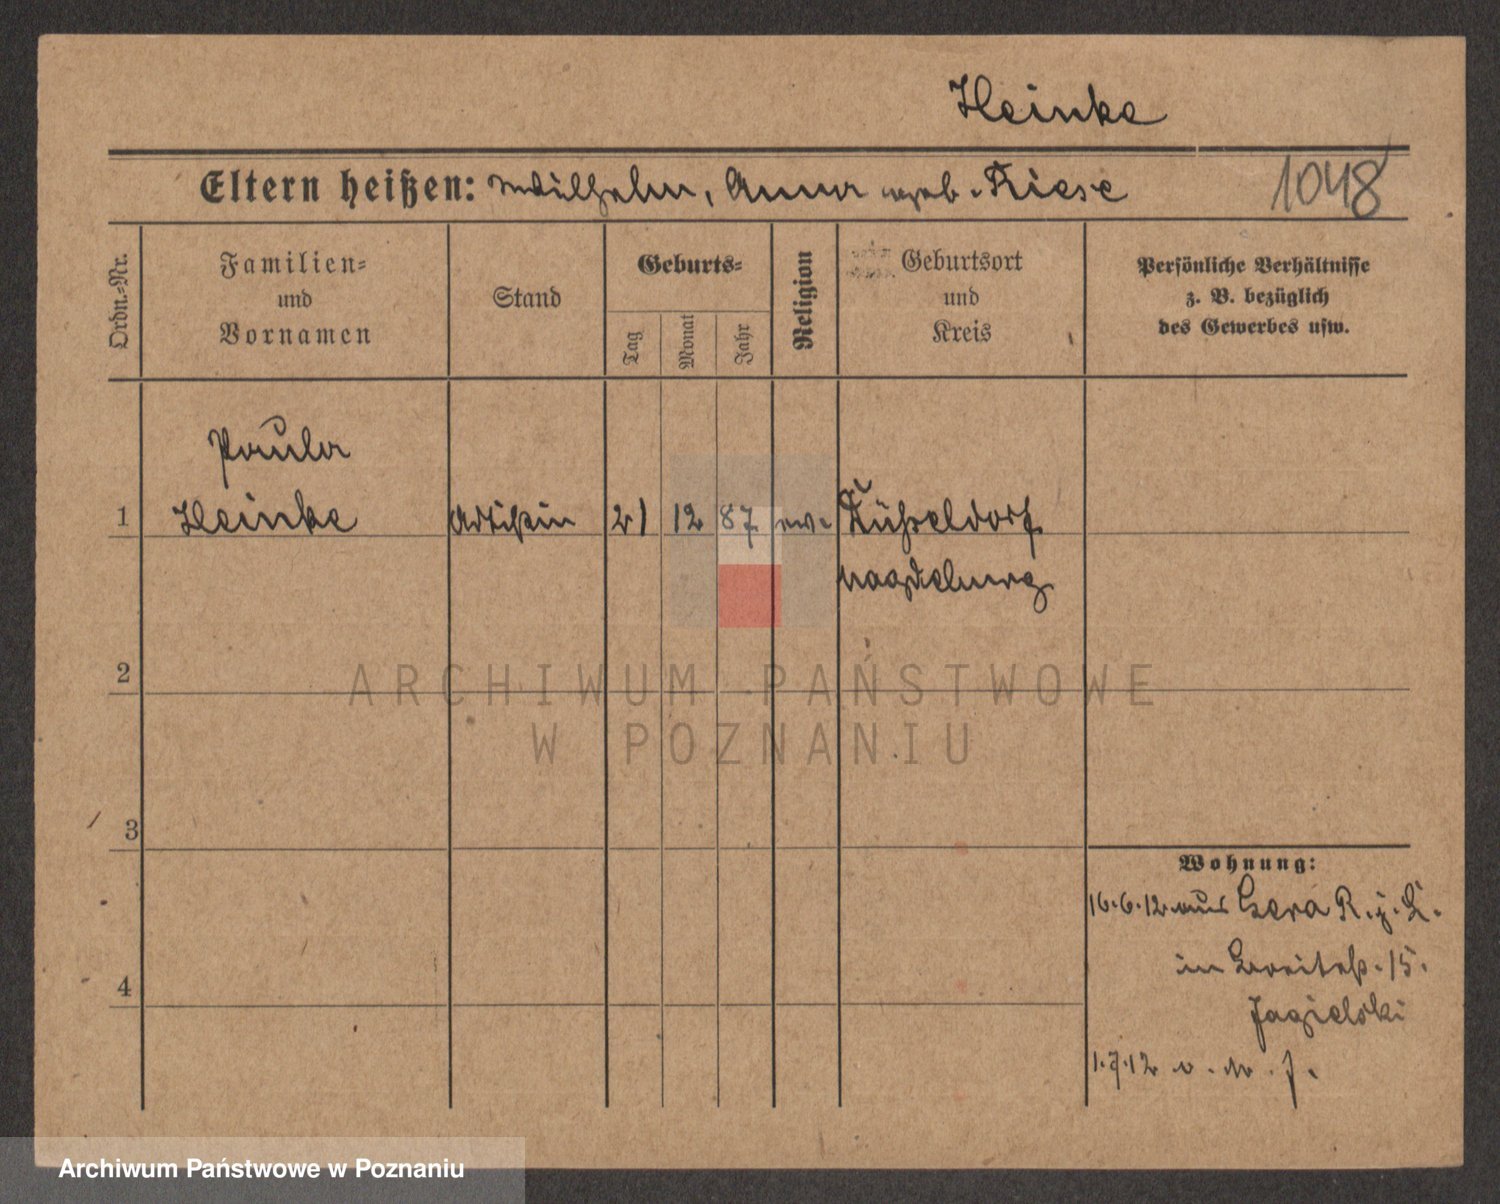 Heinke
Eltern heißen: Wilhelm, Anna geb. Riese
1048
Ordn.-Nr.
Familien-
und
Vornamen
Stand
Geburts-
Tag
Monat
Jahr
Religion
Geburtsort
und
Kreis
Persönliche Verhältnisse
z. B. bezüglich
des Gewerbes usw.
Paula
1 Heinke Artistin 21 12 87 ev.
Magdeburg
2
3
4
Wohnung:
16.6.12 aus Gera R. j. L.
in Breitestr. 15.
Jagielski
1.7.12
ARCHIWUM PAŃSTWOWE
W POZNANIU
Archiwum Państwowe w Poznaniu